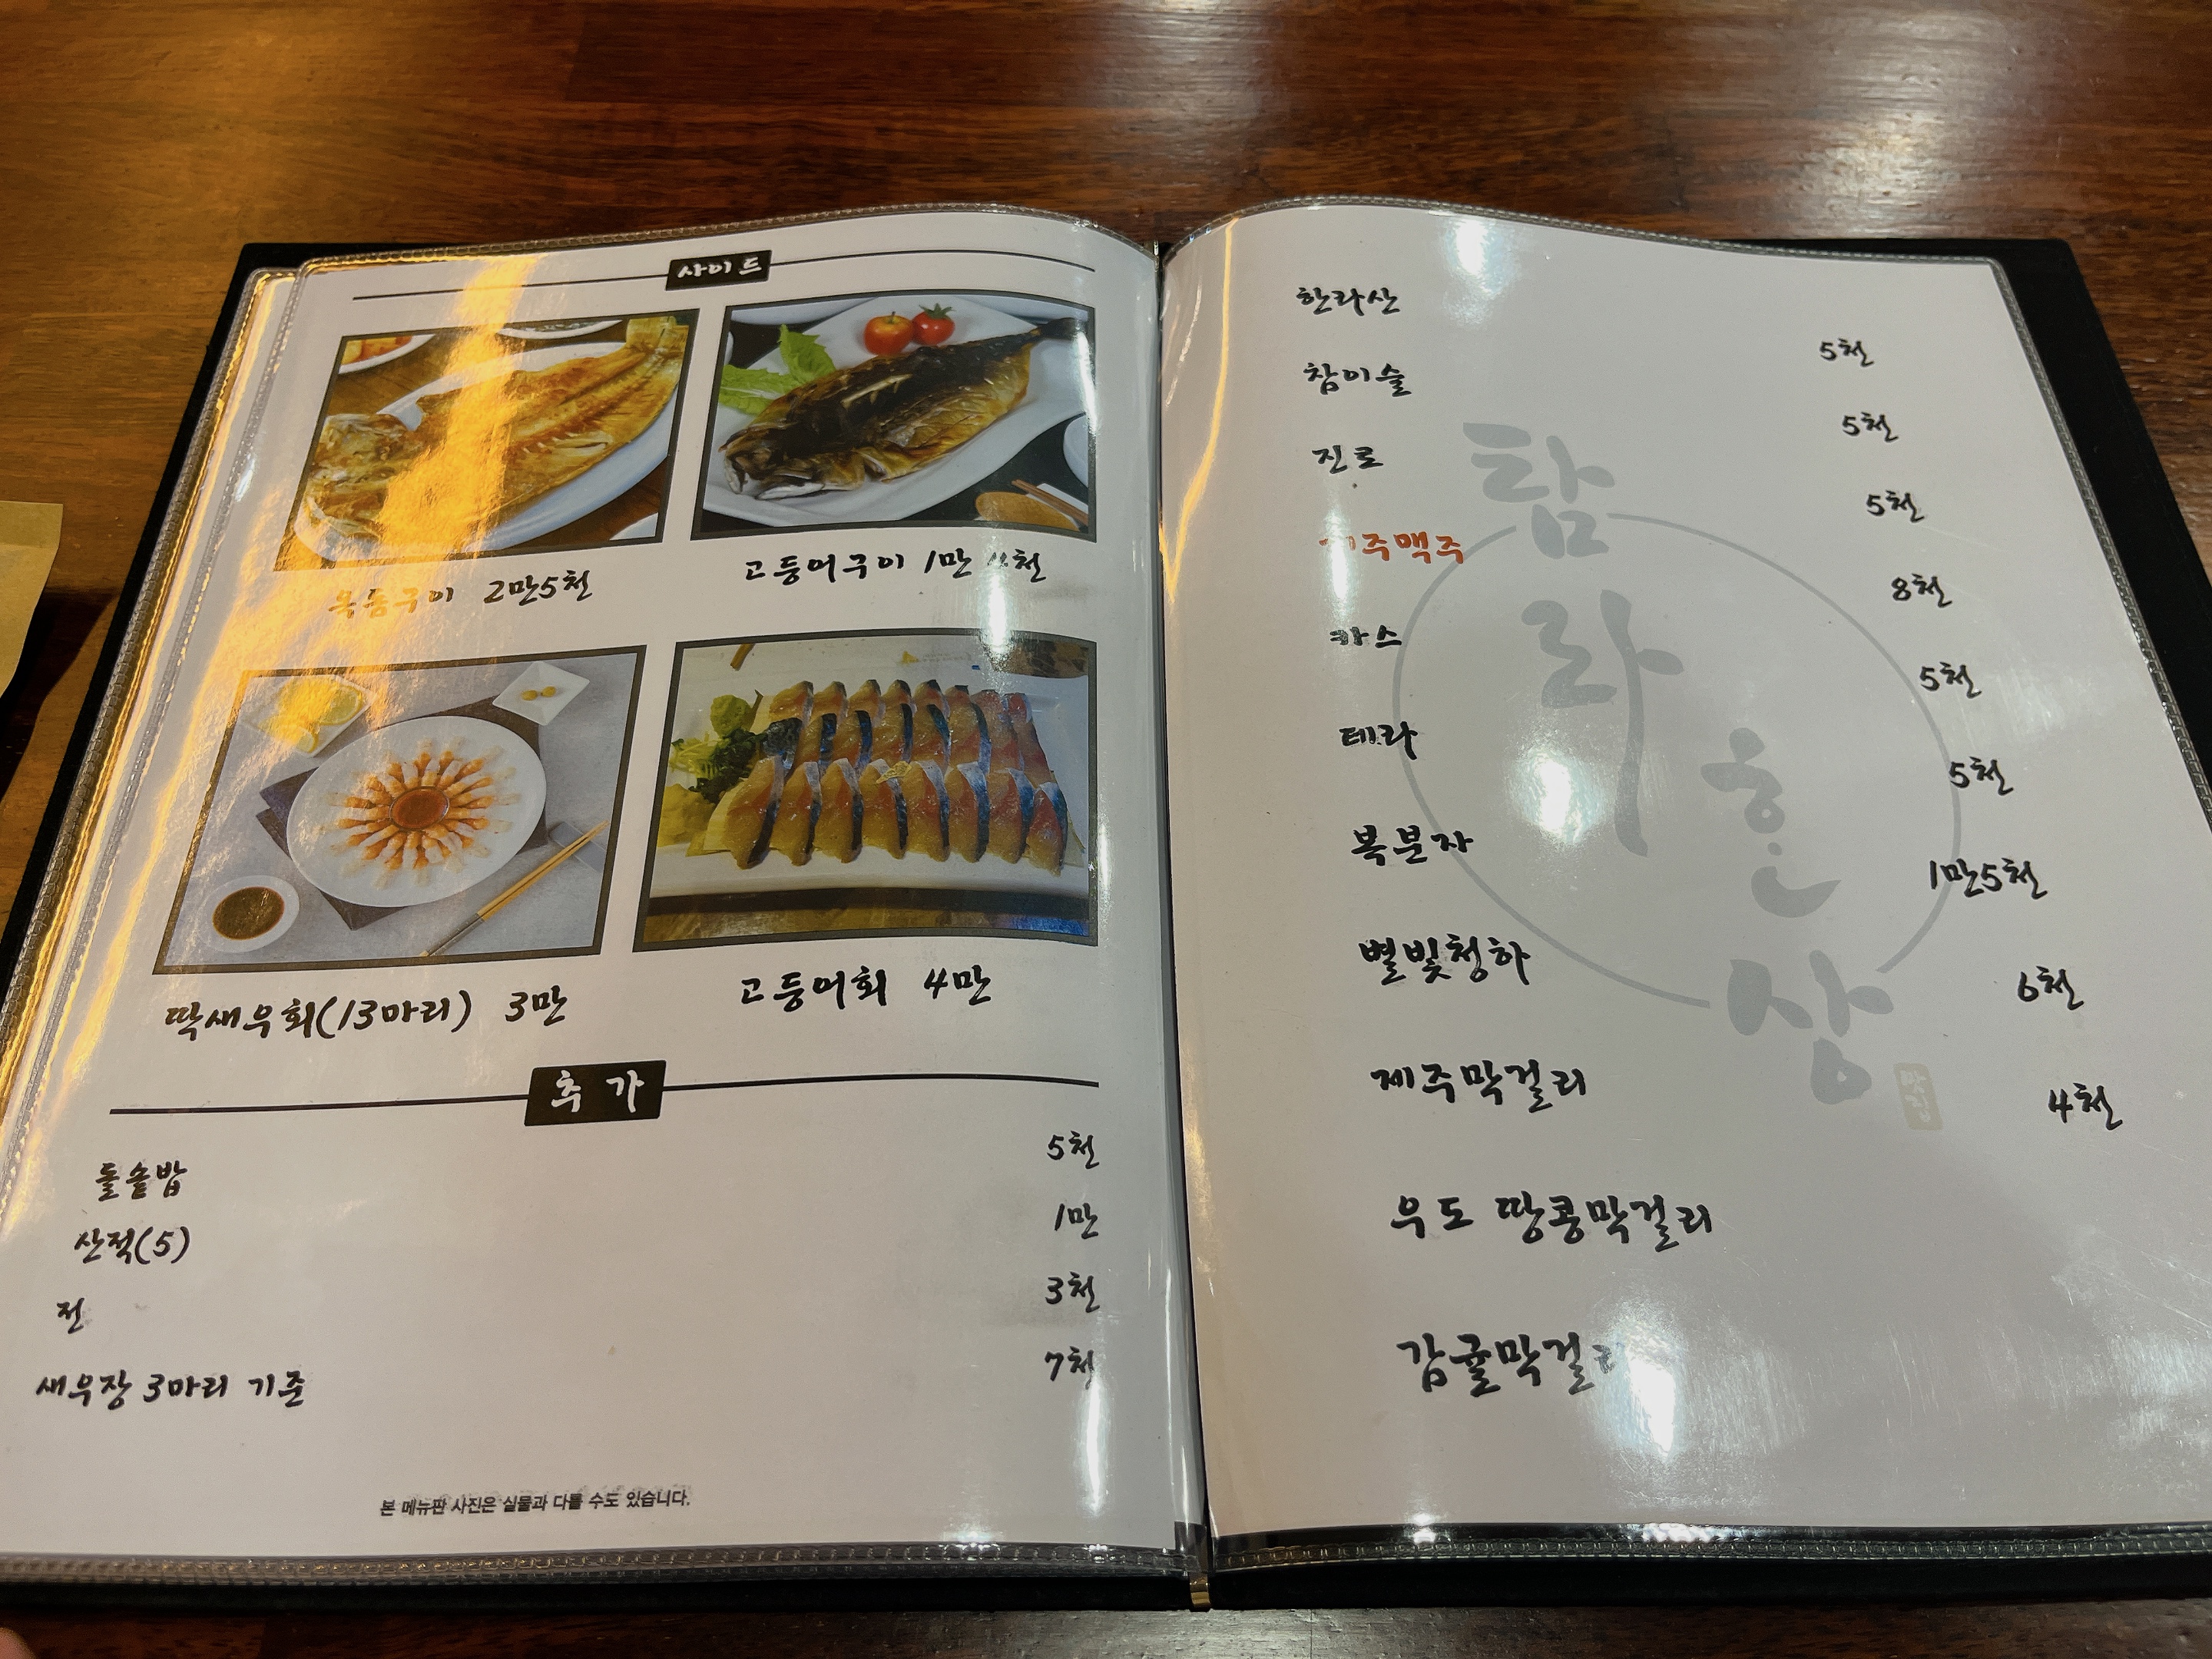 사이드
옥돔구이 2만5천
고등어구이 1만 천
딱새우회(13마리) 3만
고등어회 4만
추가
돌솥밥 5천
산적(5) 1만
전 3천
새우장 3마리 기준 7천
본 메뉴판 사진은 실물과 다를 수도 있습니다.
한라산 5천
참이슬 5천
진로 5천
제주맥주 8천
카스 5천
테라 5천
복분자 1만5천
별빛청하 6천
제주막걸리 4천
우도 땅콩막걸리
감귤막걸리
탐라한상